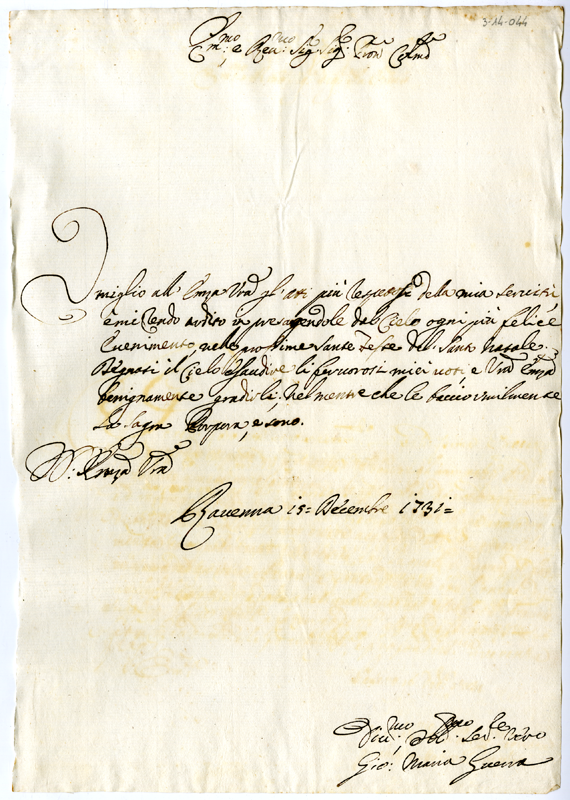 3-14-044
Em:mo e Reu:mo Sig:r Sig:r Pron Colmo
Vmiglio all' Emza Vra gl'atti più respettosi della mia seruitù,
e mi rendo ardito in presagendole dal Cielo ogni più felice
euenimento nelle prossime Sante Feste del Santo Natale.
Degnasi il Cielo esaudire li feruorosi miei uoti e Vra Emza
benignamente gradirli, nel mentre che le baccio umilmente
La Sagra Porpora, e sono.
D: Emza Vra
Rauenna 15= Decembre 1731=
Deuo: Ser:re Vero
Gio: Maria Guerra